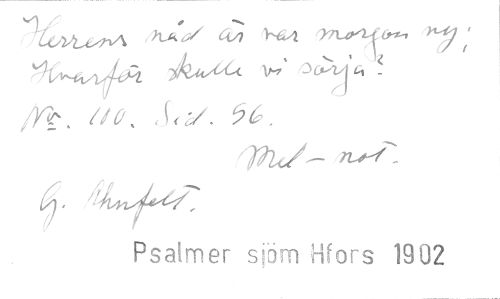 Herrens nåd är var morgon ny;
Hvarför skulle vi sörja?
No. 110. Sid. 56.
Mel-not.
O. Ahnfelt.
Psalmer sjöm Hfors 1902